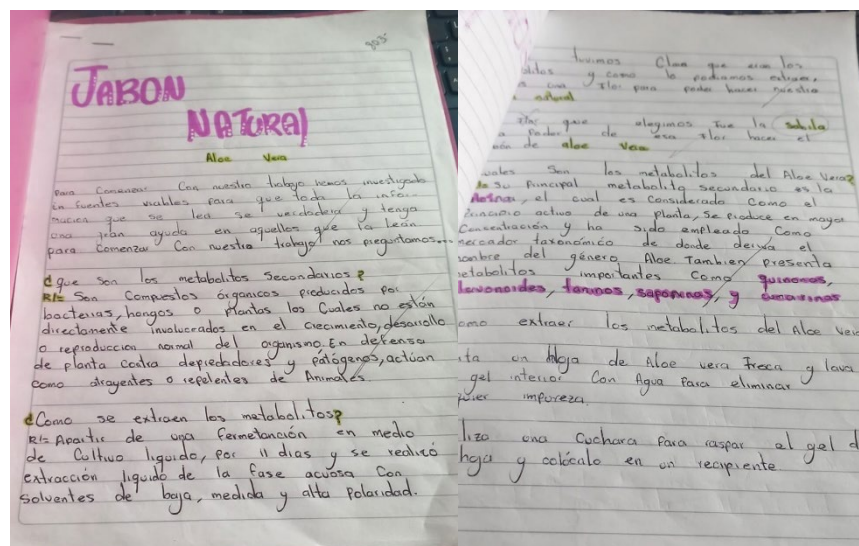 903
JABON
NATURAl
Aloe Vera
para Comenzar Con nuestro trabajo hemos investigado
en fuentes viables para que toda la infor
macion que se lea se verdadera y tenga
una gran ayuda en aquellos que la lean
para comenzar Con nuestro trabajo nos preguntamos...
¿que son los metabolitos Secondarios?
R/= Son Compuestos órganicos producidos por
bacterias, hongos o plantas los Cuales no están
directamente involucrados en el crecimiento, desarollo
o reproduccion normal del organismo. En defensa
de planta contra depredadores y patógenos, actúan
como atrayentes o repelentes de Animales.
¿Como se extraen los metabolitos?
R/= Apartir de una fermetanción en medio
de Cultivo liquido, por 11 dias y se realizó
extracción liquido de la fase acuosa Con
solventes de baja, medida y alta Polaridad.
tuvimos Claro que eran los
olitos y como lo podiamos extraer,
una flor para poder hacer nuestro
natural
flor que elegimos fue la sabila
a poder de esa flor hacer el
de aloe Vera
uales Son los metabolitos del Aloe Vera?
Su principal metabolito secundario es la
el cual es Considerado Como el
Principio activo de una planta, Se produce en mayor
Concentración y ha sido empleado Como
mercador taxonómico de donde deriva el
nombre del género Aloe. Tambien presenta
metabolitos importantes Como quinonas,
flavonoides, taninos, saponinas, y
omo extraer los metabolitos del Aloe Vera
ta un Hoja de Aloe vera Fresca y lava
gel interior Con Agua Para eliminar
quier impureza.
lizo una Cuchara Para raspar el gel d
hoja y colócalo en un recipiente